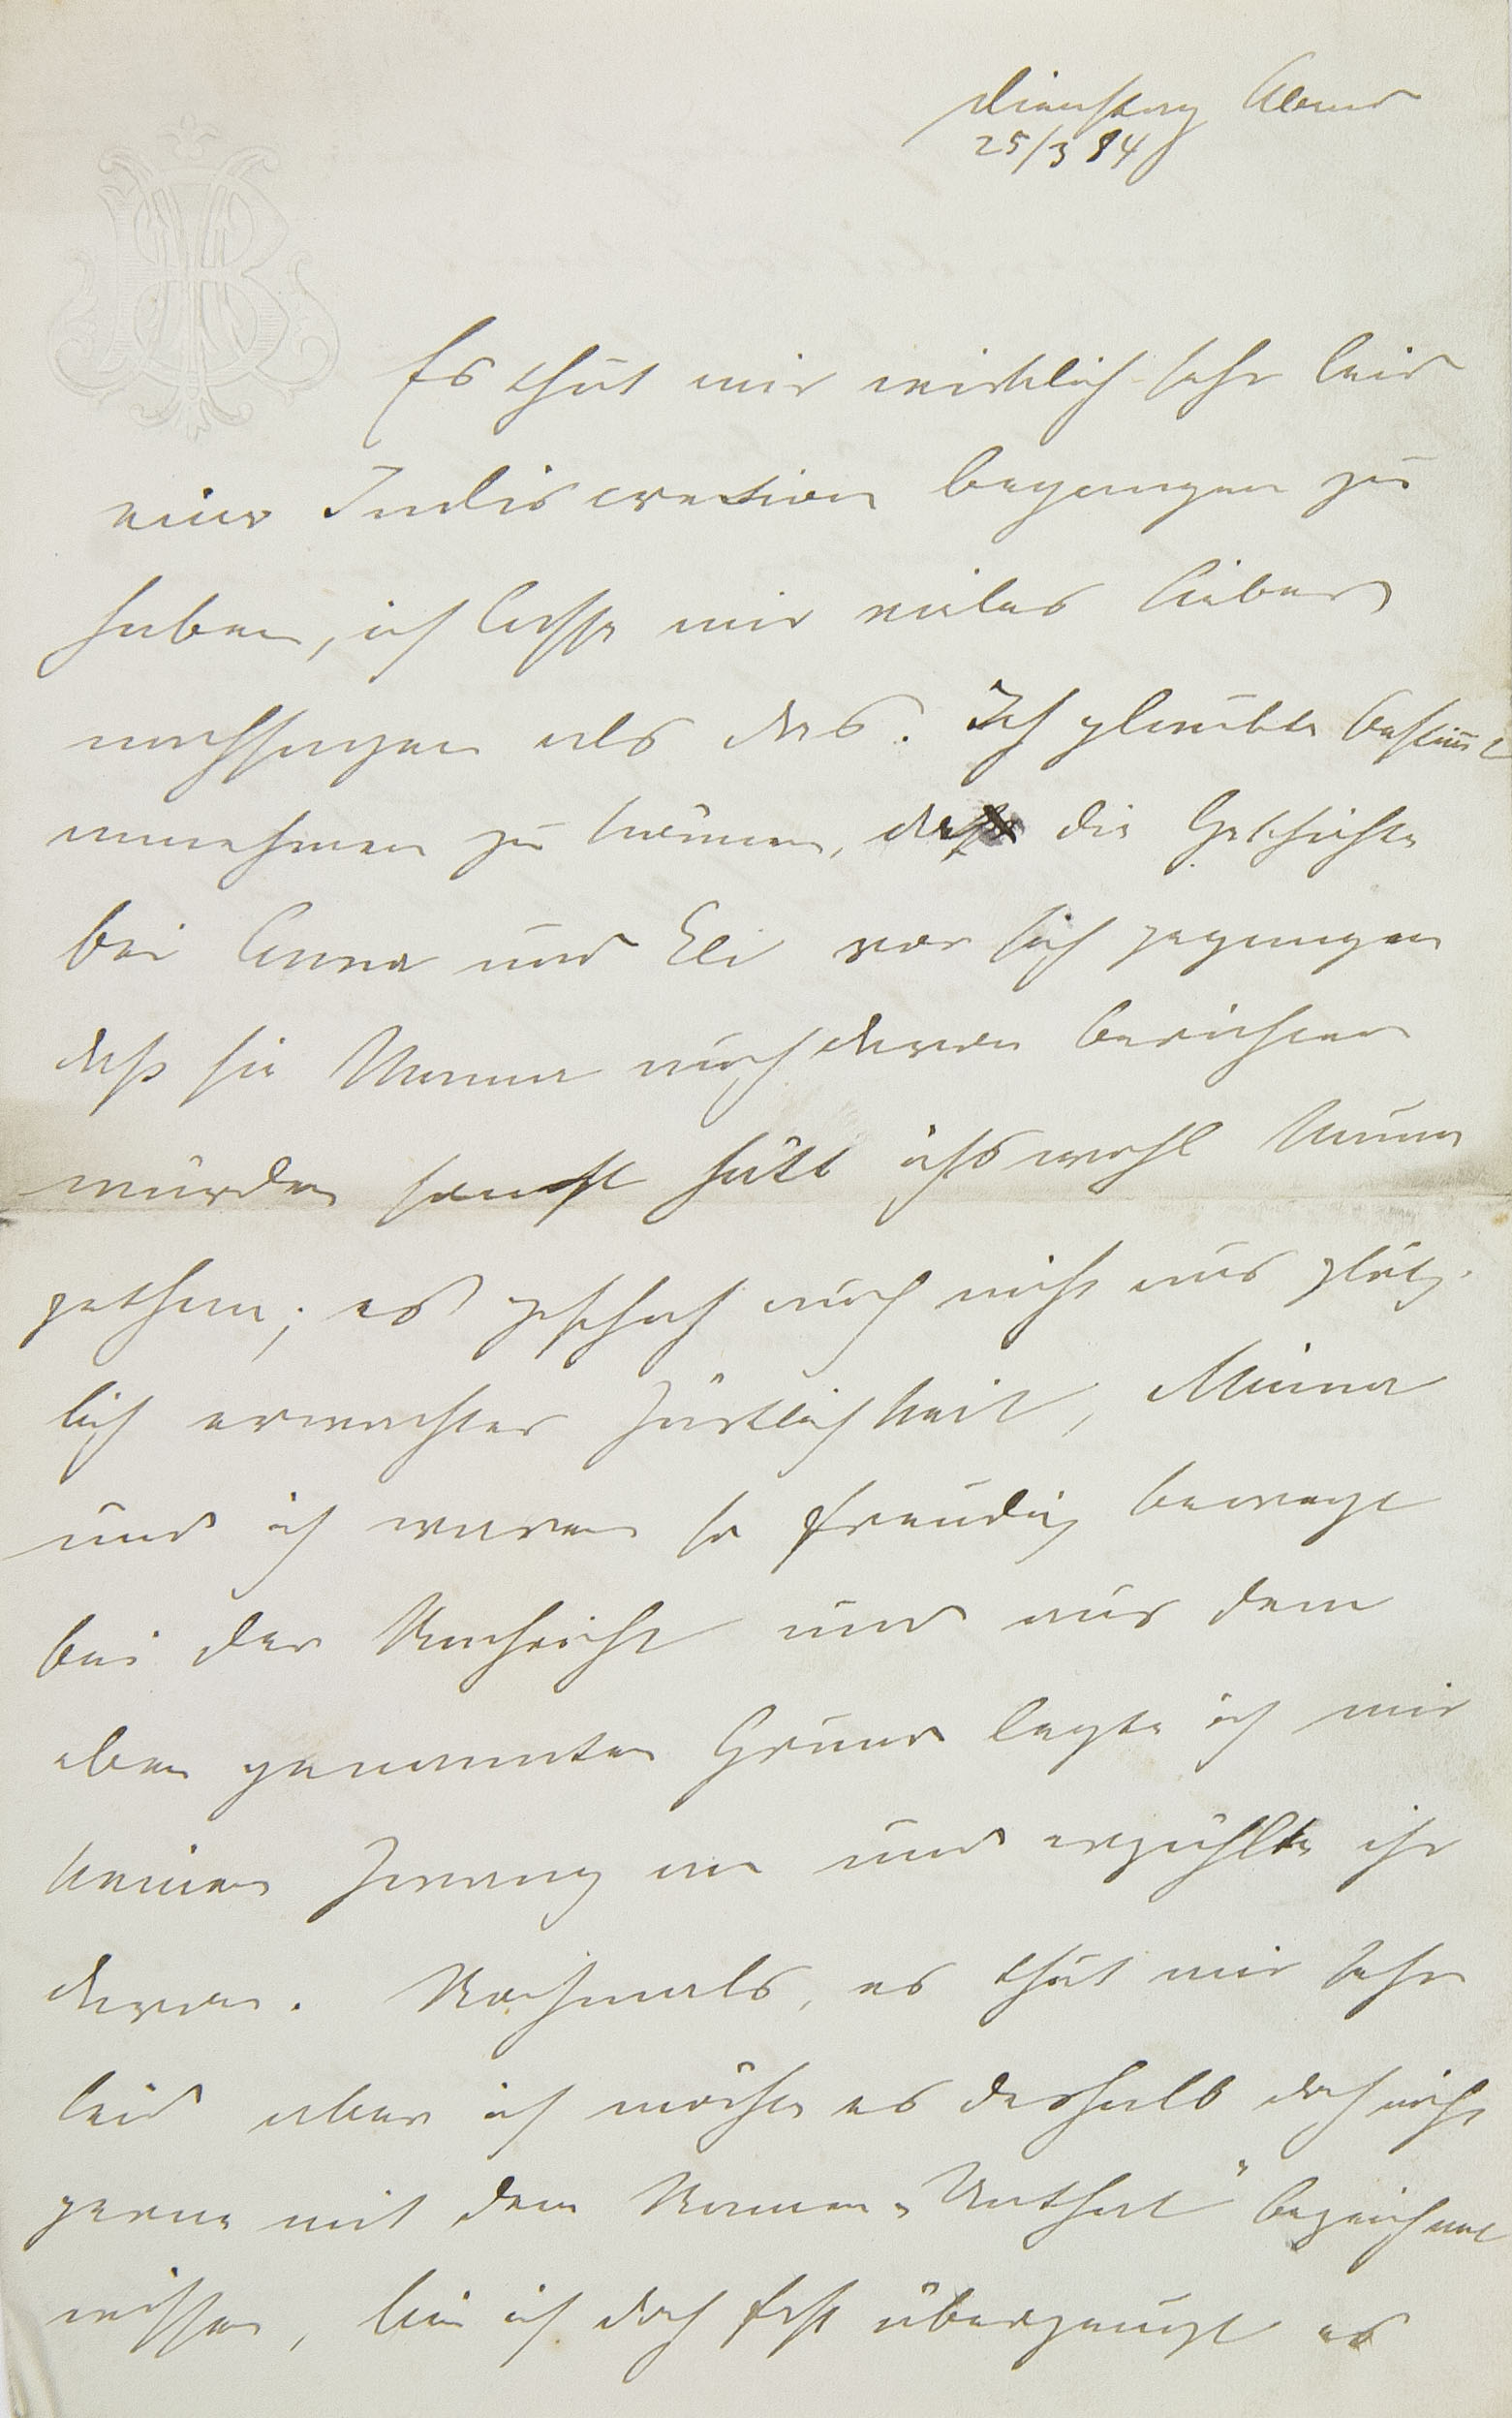 Dienstag Abend
25/3 84
MB
Es thut mir wirklich sehr leid
eine Indiscretion begangen zu
haben, ich lasse mir vieles lieber
nachsagen als das. Ich glaubte bestim̅t
annehmen zu können, daß die Geschichte
bei Anna und Eli vor sich gegangen
daß sie Mama auch davon berichten
würden sonst hätt ichs wohl kaum
gethan; es geschah auch nicht aus plötz-
lich erwachter Zärtlichkeit, Minna
und ich waren so freudig bewegt
bei der Nachricht und aus dem
eben genannten Grund legte ich mir
keinen Zwang an und erzählte ihr
davon. Nochmals, es thut mir sehr
leid aber ich möchte es deshalb doch nicht
gerne mit dem Namen „Unthat" bezeichnet
wissen, bin ich doch fest überzeugt es